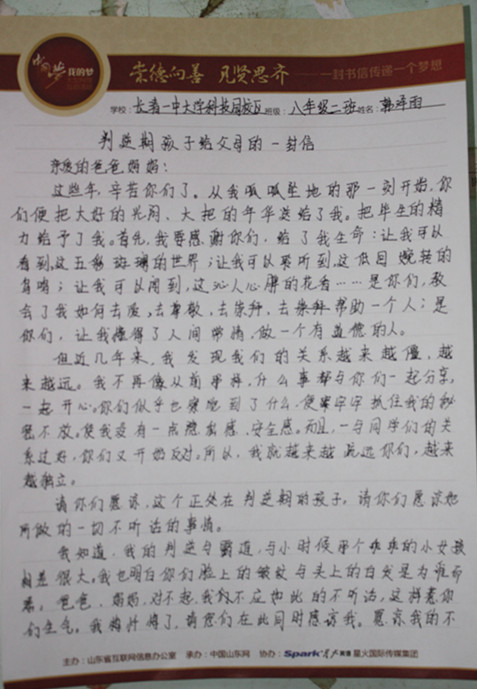 中国梦 我的梦
崇德向善 见贤思齐 一封书信传递一个梦想
学校：长清一中大学科技园校区 班级：八年级二班 姓名：韩泽雨
判逆期孩子给父母的一封信
亲爱的爸爸妈妈：
这些年，辛苦你们了。从我呱呱坠地的那一刻开始，你
们便把大好的光阴、大把的年华送给了我。把毕生的精
力给予了我。首先，我要感谢你们，给了我生命：让我可以
看到，这五彩斑斓的世界；让我可以听到，这低回婉转的
鸟鸣；让我可以闻到，这沁人心脾的花香……是你们，教
会了我如何去爱，去尊敬，去崇拜，去帮助一个人；是
你们，让我懂得了人间常情，做一个有道德的人。
但近几年来，我发现我们的关系越来越僵，越
来越远。我不再像从前那样，什么事都与你们一起分享，
一起开心。你们似乎也察觉到了什么，便牢牢抓住我的秘
密不放。使我没有一点隐私感、安全感。而且，一与同学们的关
系过好，你们又开始反对。所以，我就越来越疏远你们，越来
越独立。
请你们原谅，这个正处在判逆期的孩子。请你们原谅她
所做的一切不听话的事情。
我知道，我的判逆与霸道，与小时候那个乖乖的小女孩
相差很大。我也明白你们脸上的皱纹与头上的白发是为谁而
着。爸爸、妈妈，对不起，我们不应如此的不听话，这样惹你
们生气。我悔过了，请您们在此同时原谅我。原谅我的不
主办：山东省互联网信息办公室 承办：中国山东网 协办：Spark 星火英语 星火国际传媒集团